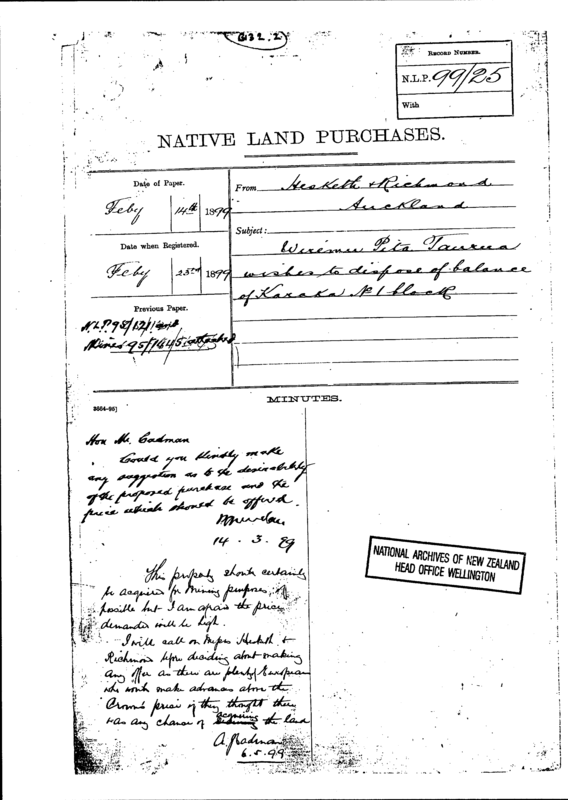 G32.2
RECORD NUMBER.
N.L.P. 99/25
With
NATIVE LAND PURCHASES.
Date of Paper.
Feby 14th 1899
Date when Registered.
Feby 23rd 1899
Previous Paper.
N.L.P. 98/121
Mines 95/1645 attached
From Hesketh & Richmond
Auckland
Subject:
Wiremu Pita Taurua
wishes to dispose of balance
of Kareka No 1 block
3554-95]
MINUTES.
Hon Mr. Cadman
Could you kindly make
any suggestion as to the desirability
of the proposed purchase and the
price which should be offered.
14. 3. 99
This property should certainly
be acquired for mining purposes, if
possible but I am afraid the price
demanded will be high.
I will call on Messrs Hesketh &
Richmond before deciding about making
any offer as there are plenty European
who would make advances above the
Crown's price if they thought there
was any chance of acquiring the land
A J Cadman
6.5.99
NATIONAL ARCHIVES OF NEW ZEALAND
HEAD OFFICE WELLINGTON